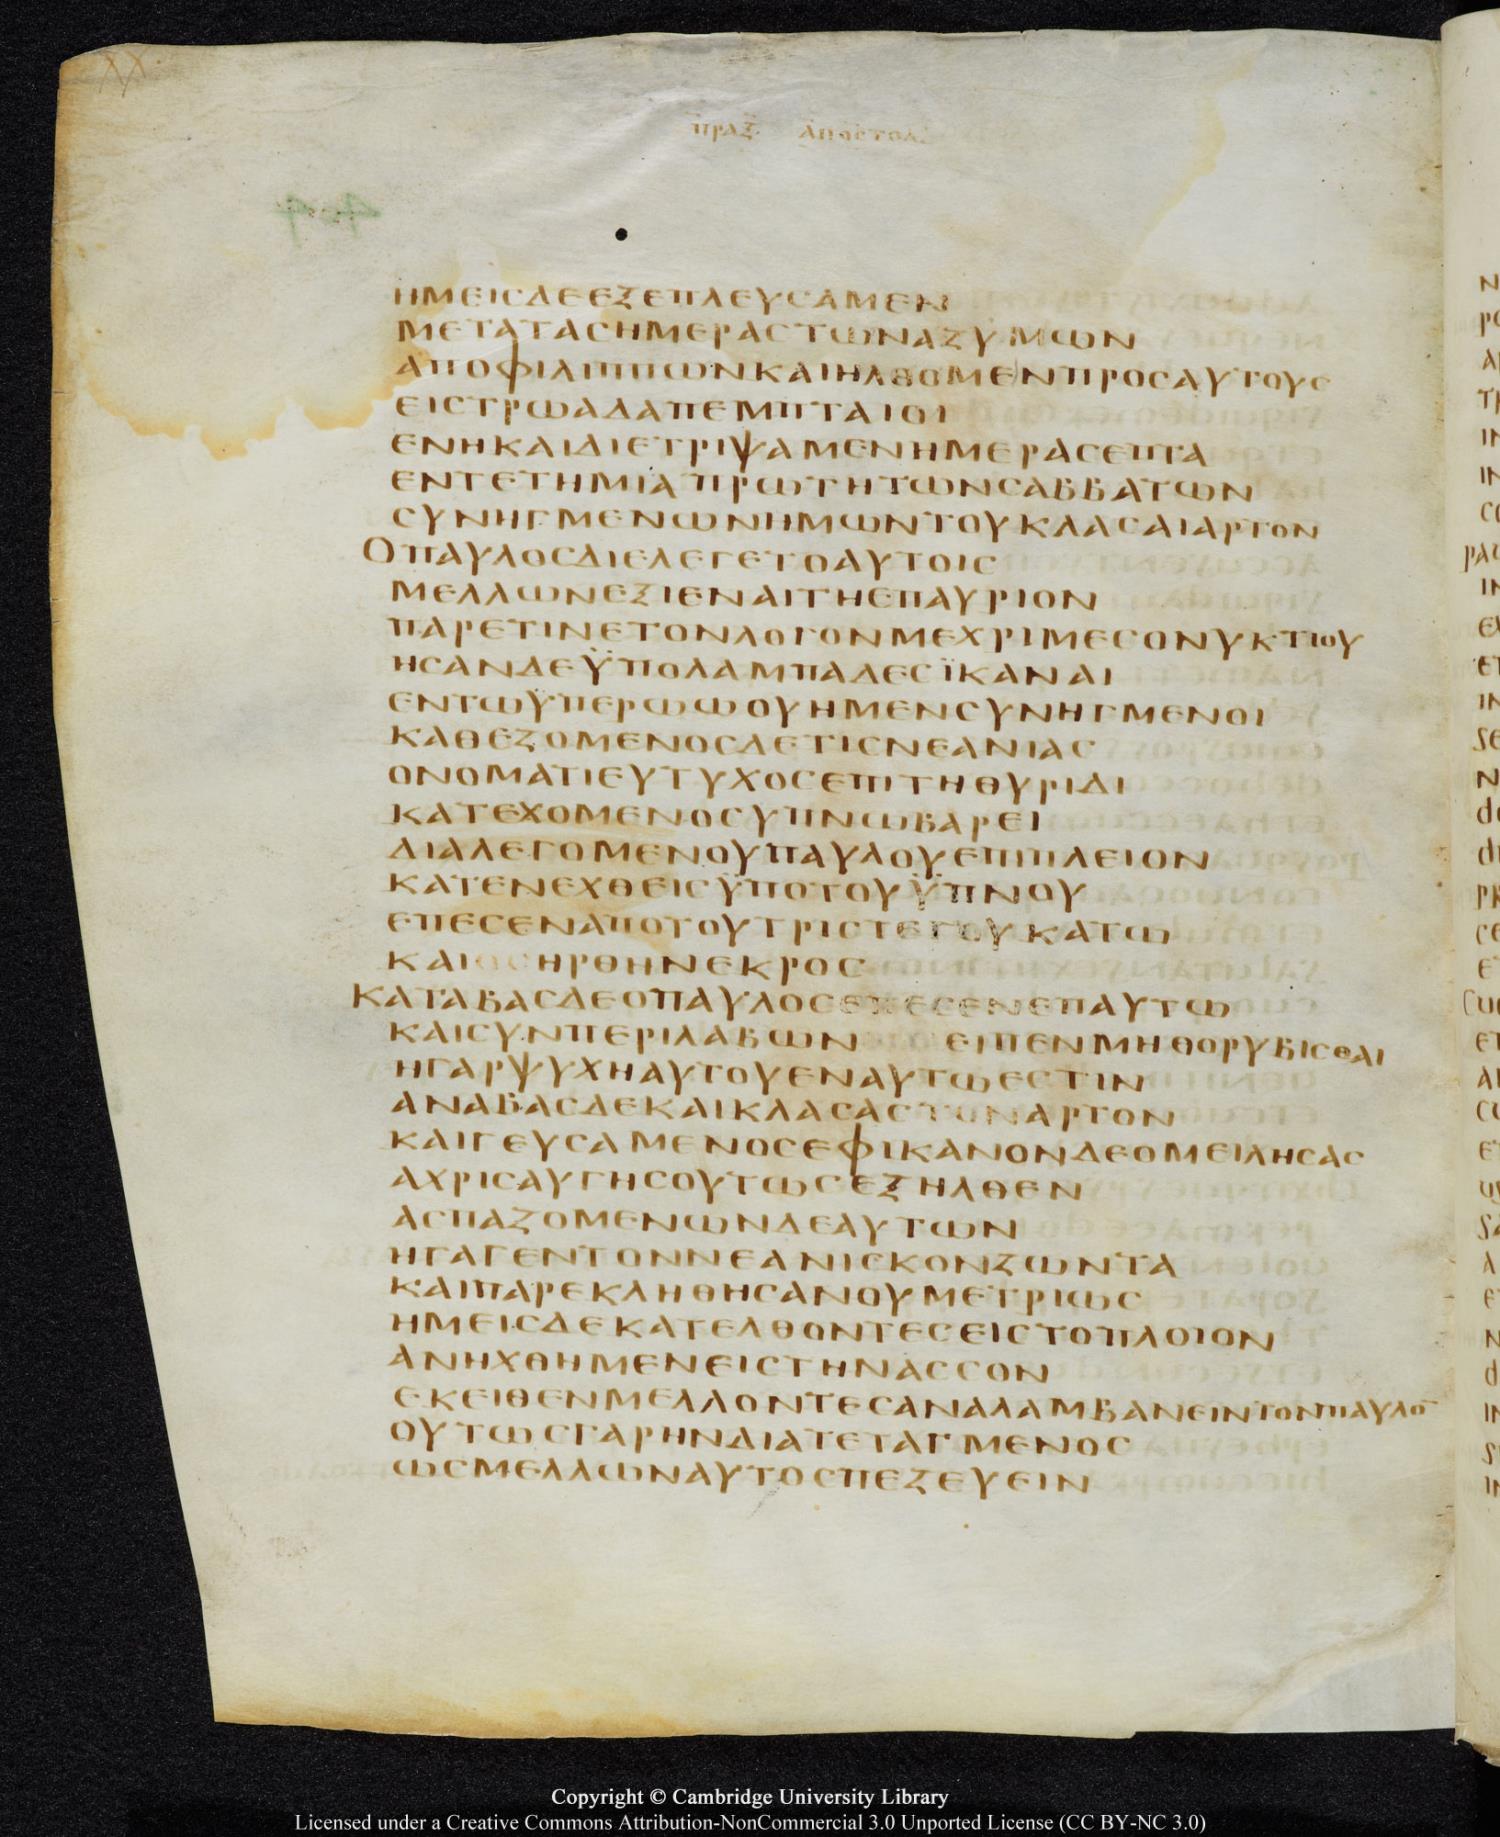 ΠΡΑΞ ΑΠΟСΤΟΛ
ΗΜΕΙСΔΕΕΞΕΠΛΕΥСΑΜΕΝ
ΜΕΤΑΤΑСΗΜΕΡΑСΤωΝΑΖΥΜωΝ
ΑΠΟΦΙΛΙΠΠωΝΚΑΙΗΛΘΟΜΕΝΠΡΟСΑΥΤΟΥС
ΕΙСΤΡωΑΔΑΠΕΜΠΤΑΙΟΙ
ΕΝΗΚΑΙΔΙΕΤΡΙΨΑΜΕΝΗΜΕΡΑСΕΠΤΑ
ΕΝΤΕΤΗΜΙΑΠΡωΤΗΤωΝСΑΒΒΑΤωΝ
СΥΝΗΓΜΕΝωΝΗΜωΝΤΟΥΚΛΑСΑΙΑΡΤΟΝ
ΟΠΑΥΛΟСΔΙΕΛΕΓΕΤΟΑΥΤΟΙС
ΜΕΛΛωΝΕΞΙΕΝΑΙΤΗΕΠΑΥΡΙΟΝ
ΠΑΡΕΤΙΝΕΤΟΝΛΟΓΟΝΜΕΧΡΙΜΕСΟΝΥΚΤΙΟΥ
ΗСΑΝΔΕΫΠΟΛΑΜΠΑΔΕСΪΚΑΝΑΙ
ΕΝΤωΫΠΕΡωωΟΥΗΜΕΝСΥΝΗΓΜΕΝΟΙ
ΚΑΘΕΖΟΜΕΝΟСΔΕΤΙСΝΕΑΝΙΑС
ΟΝΟΜΑΤΙΕΥΤΥΧΟСΕΠΙΤΗΘΥΡΙΔΙ
ΚΑΤΕΧΟΜΕΝΟСΥΠΝωΒΑΡΕΙ
ΔΙΑΛΕΓΟΜΕΝΟΥΠΑΥΛΟΥΕΠΙΠΛΕΙΟΝ
ΚΑΤΕΝΕΧΘΕΙСΫΠΟΤΟΥΫΠΝΟΥ
ΕΠΕСΕΝΑΠΟΤΟΥΤΡΙСΤΕΓΟΥΚΑΤω
ΚΑΙΟСΗΡΘΗΝΕΚΡΟС
ΚΑΤΑΒΑСΔΕΟΠΑΥΛΟСΕΠΕСΕΝΕΠΑΥΤω
ΚΑΙСΥΝΠΕΡΙΛΑΒωΝ ΕΙΠΕΝΜΗΘΟΡΥΒΙСΘΑΙ
ΗΓΑΡΨΥΧΗΑΥΤΟΥΕΝΑΥΤωΕСΤΙΝ
ΑΝΑΒΑСΔΕΚΑΙΚΛΑСΑСΤΟΝΑΡΤΟΝ
ΚΑΙΓΕΥСΑΜΕΝΟСΕΦΙΚΑΝΟΝΔΕΟΜΕΙΛΗСΑС
ΑΧΡΙСΑΥΓΗСΟΥΤωСΕΞΗΛΘΕΝ
ΑСΠΑΖΟΜΕΝωΝΔΕΑΥΤωΝ
ΗΓΑΓΕΝΤΟΝΝΕΑΝΙСΚΟΝΖωΝΤΑ
ΚΑΙΠΑΡΕΚΛΗΘΗСΑΝΟΥΜΕΤΡΙωС
ΗΜΕΙСΔΕΚΑΤΕΛΘΟΝΤΕСΕΙСΤΟΠΛΟΙΟΝ
ΑΝΗΧΘΗΜΕΝΕΙСΤΗΝΑССΟΝ
ΕΚΕΙΘΕΝΜΕΛΛΟΝΤΕСΑΝΑΛΑΜΒΑΝΕΙΝΤΟΝΠΑΥΛΟ̅
ΟΥΤωСΓΑΡΗΝΔΙΑΤΕΤΑΓΜΕΝΟС
ωСΜΕΛΛωΝΑΥΤΟСΠΕΖΕΥΕΙΝ
Copyright © Cambridge University Library
Licensed under a Creative Commons Attribution-NonCommercial 3.0 Unported License (CC BY-NC 3.0)